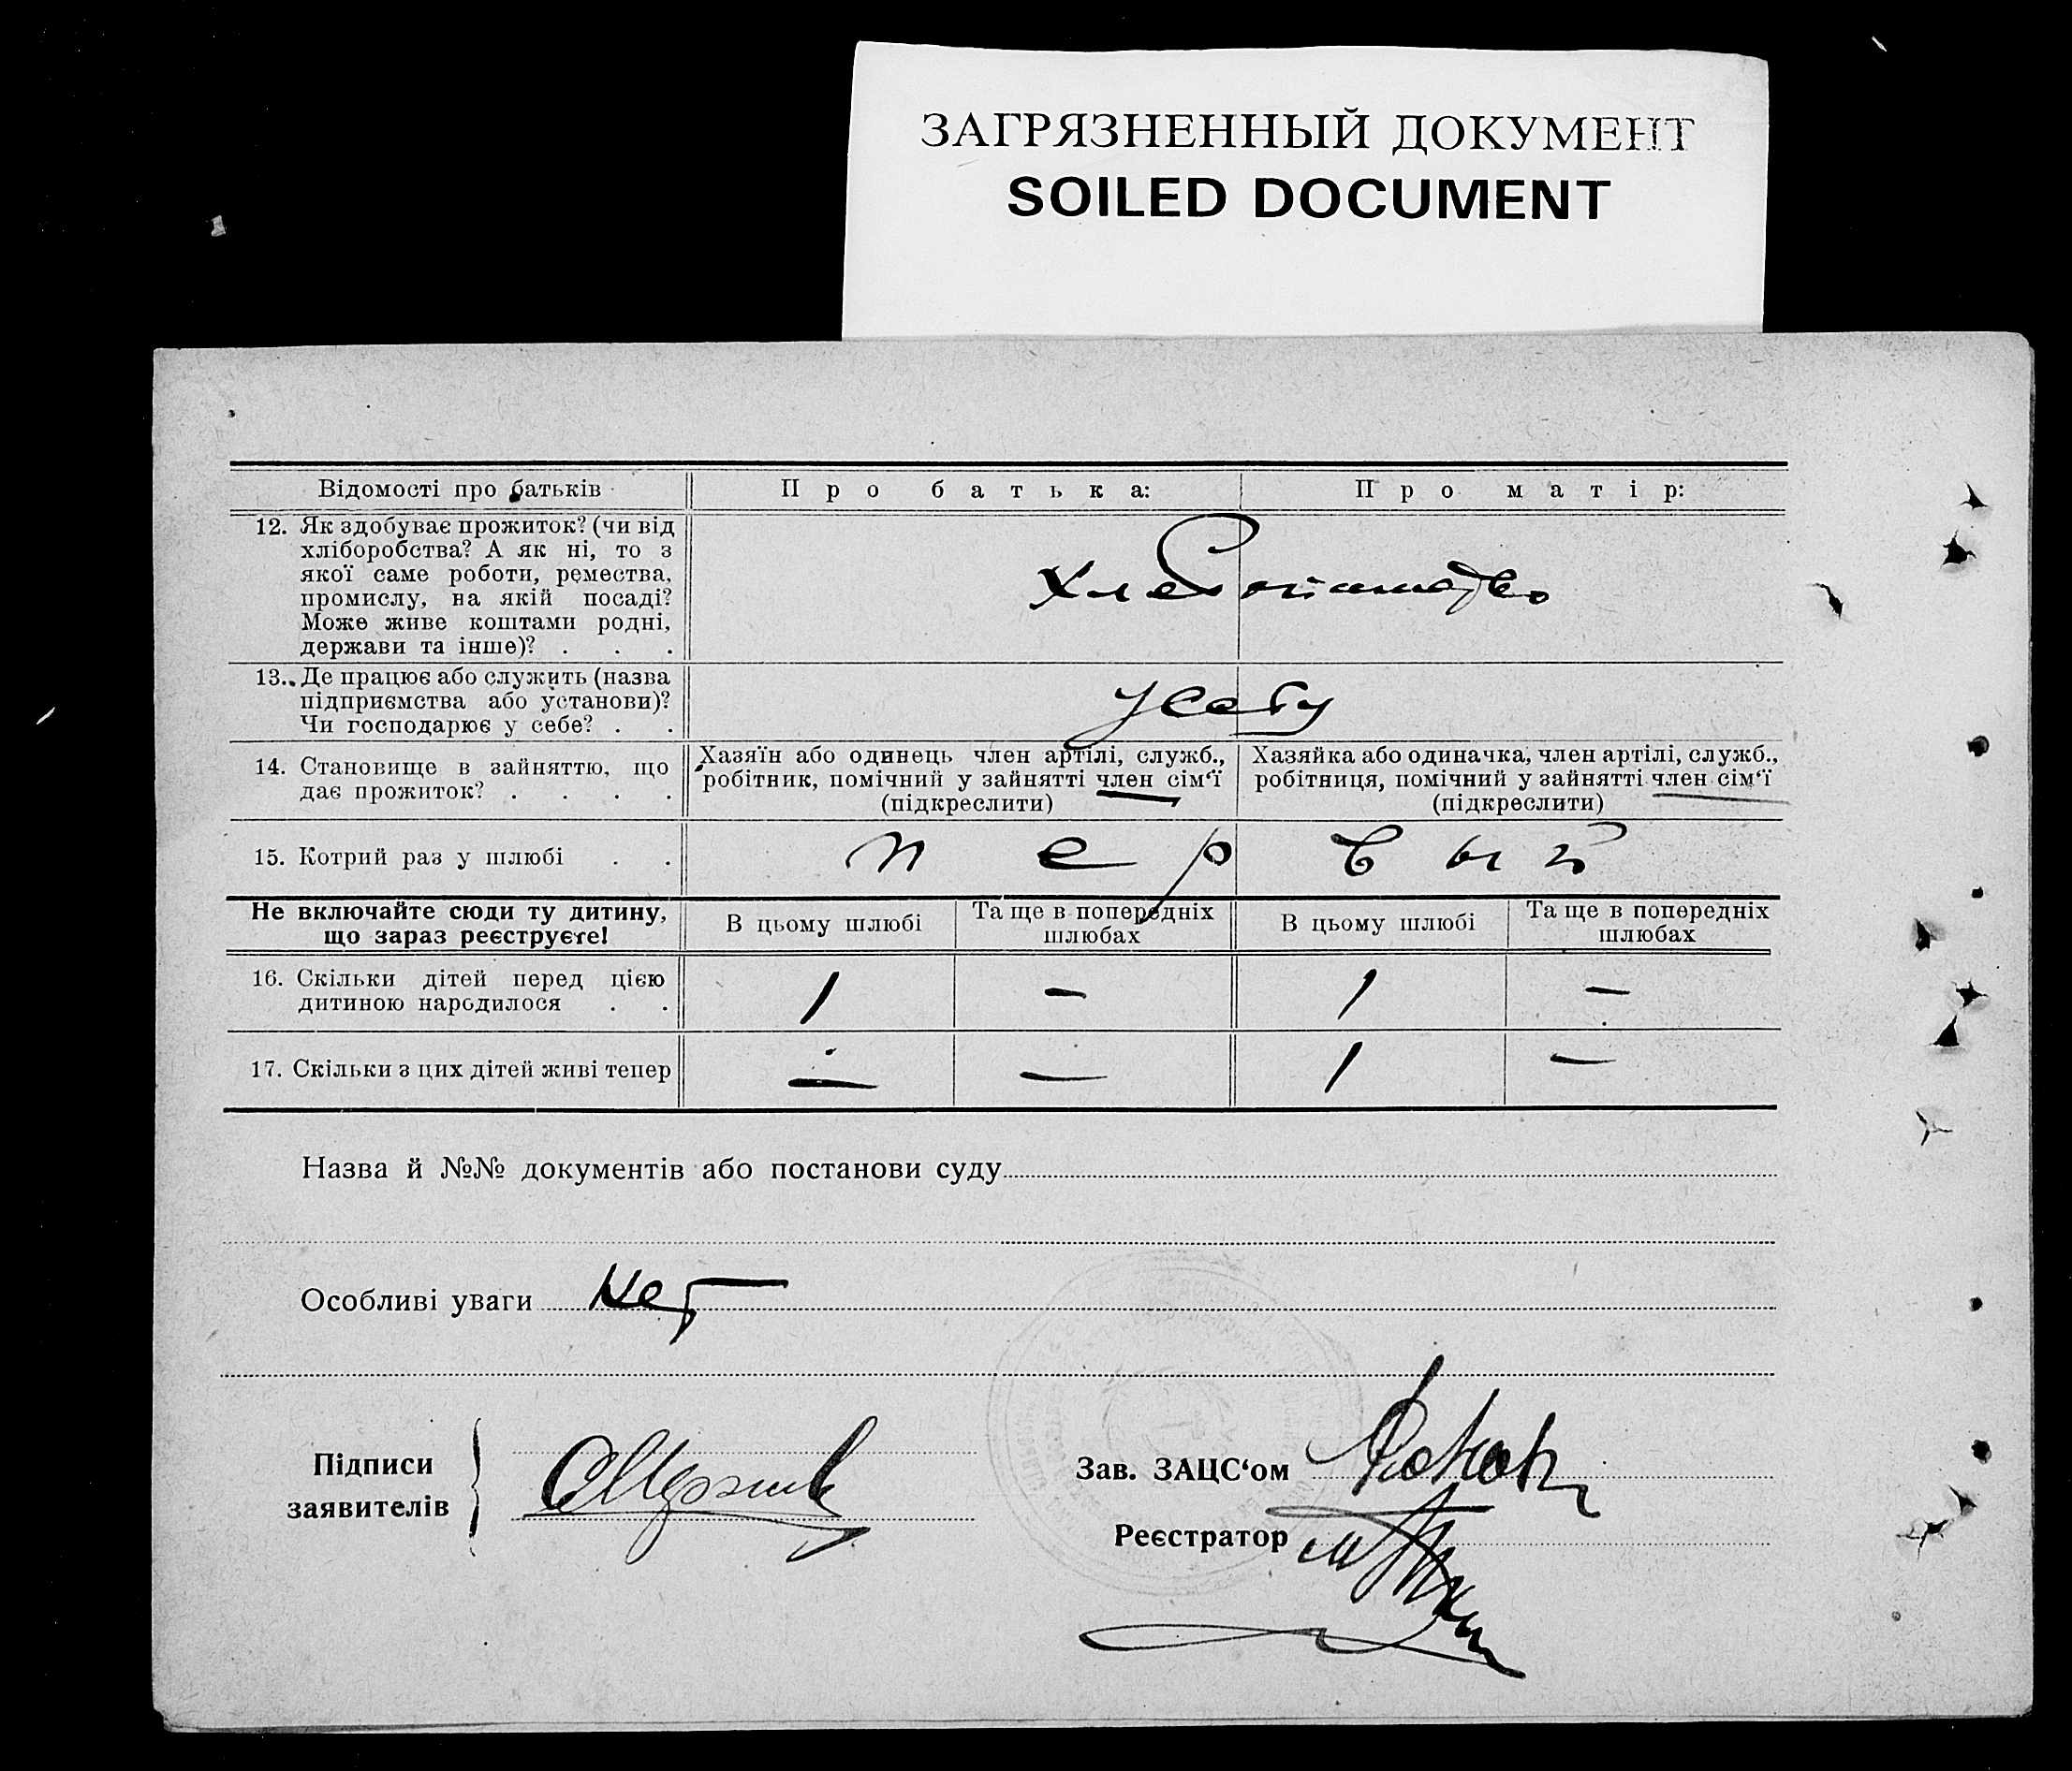 ЗАГРЯЗНЕННЫЙ ДОКУМЕНТ
SOILED DOCUMENT
Відомості про батьків
Про батька:
Про матір:
12. Як здобуває прожиток? (чи від
хліборобства? А як ні, то з
якої саме роботи, ремества,
промислу, на якій посаді?
Може живе коштами родні,
держави та інше)? . . .
13. Де працює або служить (назва
підприємства або установи)?
Чи господарює у себе? . .
у себя
14. Становище в зайняттю, що
дає прожиток? . . . .
Хазяїн або одинець член артілі, служб.,
робітник, помічний у зайнятті член сім‘ї
(підкреслити)
Хазяйка або одиначка, член артілі, служб.,
робітниця, помічний у зайнятті член сім‘ї
(підкреслити)
15. Котрий раз у шлюбі . .
первый
Не включайте сюди ту дитину,
що зараз реєструєте!
В цьому шлюбі
Та ще в попередніх
шлюбах
В цьому шлюбі
Та ще в попередніх
шлюбах
16. Скільки дітей перед цією
дитиною народилося . .
1 — 1 —
17. Скільки з цих дітей живі тепер
— — 1 —
Назва й №№ документів або постанови суду
Особливі уваги нет
Підписи
заявителів
Зав. ЗАЦС‘ом
Реєстратор